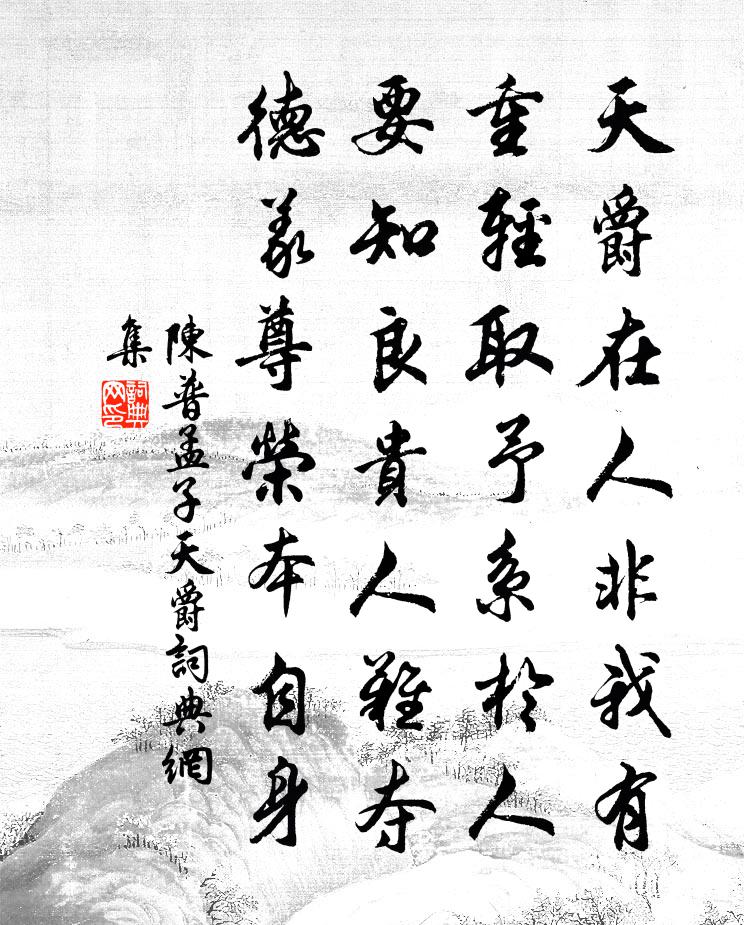 天爵在人非我有
重輕取予系於人
要知良貴人難夺
德義尊榮本自身
陳普孟子天爵詞典網
集
詞典网印